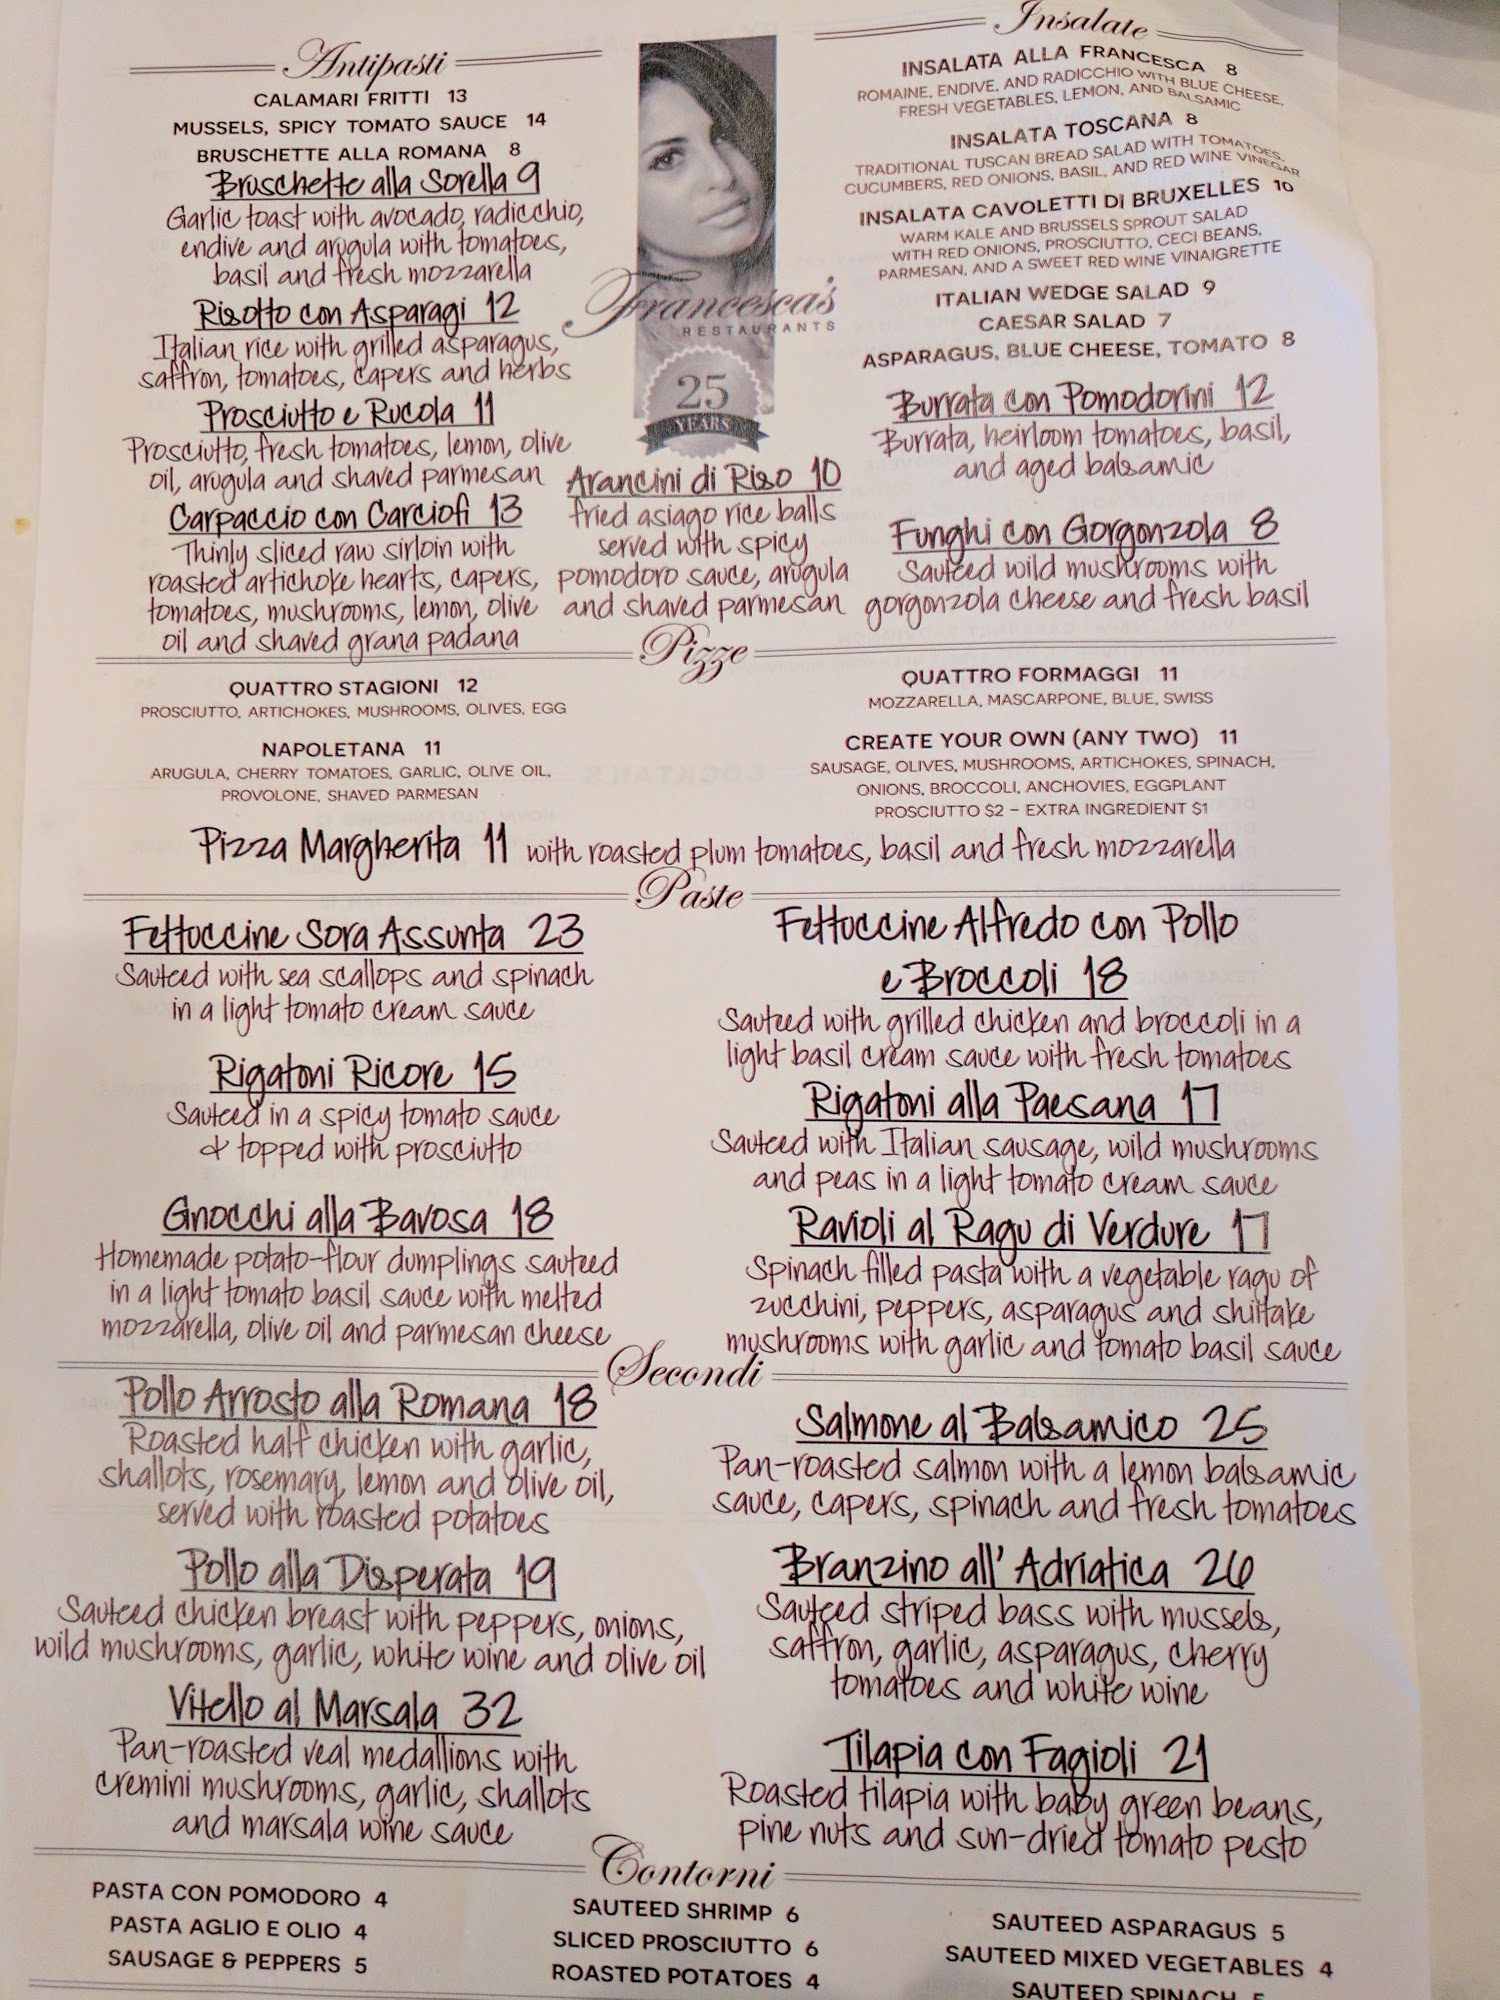 Antipasti
CALAMARI FRITTI 13
MUSSELS, SPICY TOMATO SAUCE 14
BRUSCHETTE ALLA ROMANA 8
Bruschette alla Sorella 9
Garlic toast with avocado, radicchio,
endive and arugula with tomatoes,
basil and fresh mozzarella
Risotto con Asparagi 12
Italian rice with grilled asparagus,
saffron, tomatoes, capers and herbs
Prosciutto e Rucola 11
Prosciutto, fresh tomatoes, lemon, olive
oil, arugula and shaved parmesan
Carpaccio con Carciofi 13
Thinly sliced raw sirloin with
roasted artichoke hearts, capers,
tomatoes, mushrooms, lemon, olive
oil and shaved grana padana
Francesca's
RESTAURANTS
25
YEARS
Arancini di Riso 10
fried asiago rice balls
served with spicy
pomodoro sauce, arugula
and shaved parmesan
Insalate
INSALATA ALLA FRANCESCA 8
ROMAINE, ENDIVE, AND RADICCHIO WITH BLUE CHEESE,
FRESH VEGETABLES, LEMON, AND BALSAMIC
INSALATA TOSCANA 8
TRADITIONAL TUSCAN BREAD SALAD WITH TOMATOES,
CUCUMBERS, RED ONIONS, BASIL, AND RED WINE VINEGAR
INSALATA CAVOLETTI DI BRUXELLES 10
WARM KALE AND BRUSSELS SPROUT SALAD
WITH RED ONIONS, PROSCIUTTO, CECI BEANS,
PARMESAN, AND A SWEET RED WINE VINAIGRETTE
ITALIAN WEDGE SALAD 9
CAESAR SALAD 7
ASPARAGUS, BLUE CHEESE, TOMATO 8
Burrata con Pomodorini 12
Burrata, heirloom tomatoes, basil,
and aged balsamic
Funghi con Gorgonzola 8
Sauteed wild mushrooms with
gorgonzola cheese and fresh basil
Pizze
QUATTRO STAGIONI 12
PROSCIUTTO, ARTICHOKES, MUSHROOMS, OLIVES, EGG
NAPOLETANA 11
ARUGULA, CHERRY TOMATOES, GARLIC, OLIVE OIL,
PROVOLONE, SHAVED PARMESAN
QUATTRO FORMAGGI 11
MOZZARELLA, MASCARPONE, BLUE, SWISS
CREATE YOUR OWN (ANY TWO) 11
SAUSAGE, OLIVES, MUSHROOMS, ARTICHOKES, SPINACH,
ONIONS, BROCCOLI, ANCHOVIES, EGGPLANT
PROSCIUTTO $2 – EXTRA INGREDIENT $1
Pizza Margherita 11 with roasted plum tomatoes, basil and fresh mozzarella
Paste
Fettuccine Sora Assunta 23
Sauteed with sea scallops and spinach
in a light tomato cream sauce
Rigatoni Ricore 15
Sauteed in a spicy tomato sauce
& topped with prosciutto
Gnocchi alla Bavosa 18
Homemade potato-flour dumplings sauteed
in a light tomato basil sauce with melted
mozzarella, olive oil and parmesan cheese
Fettuccine Alfredo con Pollo
e Broccoli 18
Sauteed with grilled chicken and broccoli in a
light basil cream sauce with fresh tomatoes
Rigatoni alla Paesana 17
Sauteed with Italian sausage, wild mushrooms
and peas in a light tomato cream sauce
Ravioli al Ragu di Verdure 17
Spinach filled pasta with a vegetable ragu of
zucchini, peppers, asparagus and shiitake
mushrooms with garlic and tomato basil sauce
Secondi
Pollo Arrosto alla Romana 18
Roasted half chicken with garlic,
shallots, rosemary, lemon and olive oil,
served with roasted potatoes
Pollo alla Disperata 19
Sauteed chicken breast with peppers, onions,
wild mushrooms, garlic, white wine and olive oil
Vitello al Marsala 32
Pan-roasted veal medallions with
cremini mushrooms, garlic, shallots
and marsala wine sauce
Salmone al Balsamico 25
Pan-roasted salmon with a lemon balsamic
sauce, capers, spinach and fresh tomatoes
Branzino all' Adriatica 26
Sauteed striped bass with mussels,
saffron, garlic, asparagus, cherry
tomatoes and white wine
Tilapia con Fagioli 21
Roasted tilapia with baby green beans,
pine nuts and sun-dried tomato pesto
Contorni
PASTA CON POMODORO 4
PASTA AGLIO E OLIO 4
SAUSAGE & PEPPERS 5
SAUTEED SHRIMP 6
SLICED PROSCIUTTO 6
ROASTED POTATOES 4
SAUTEED ASPARAGUS 5
SAUTEED MIXED VEGETABLES 4
SAUTEED SPINACH 5